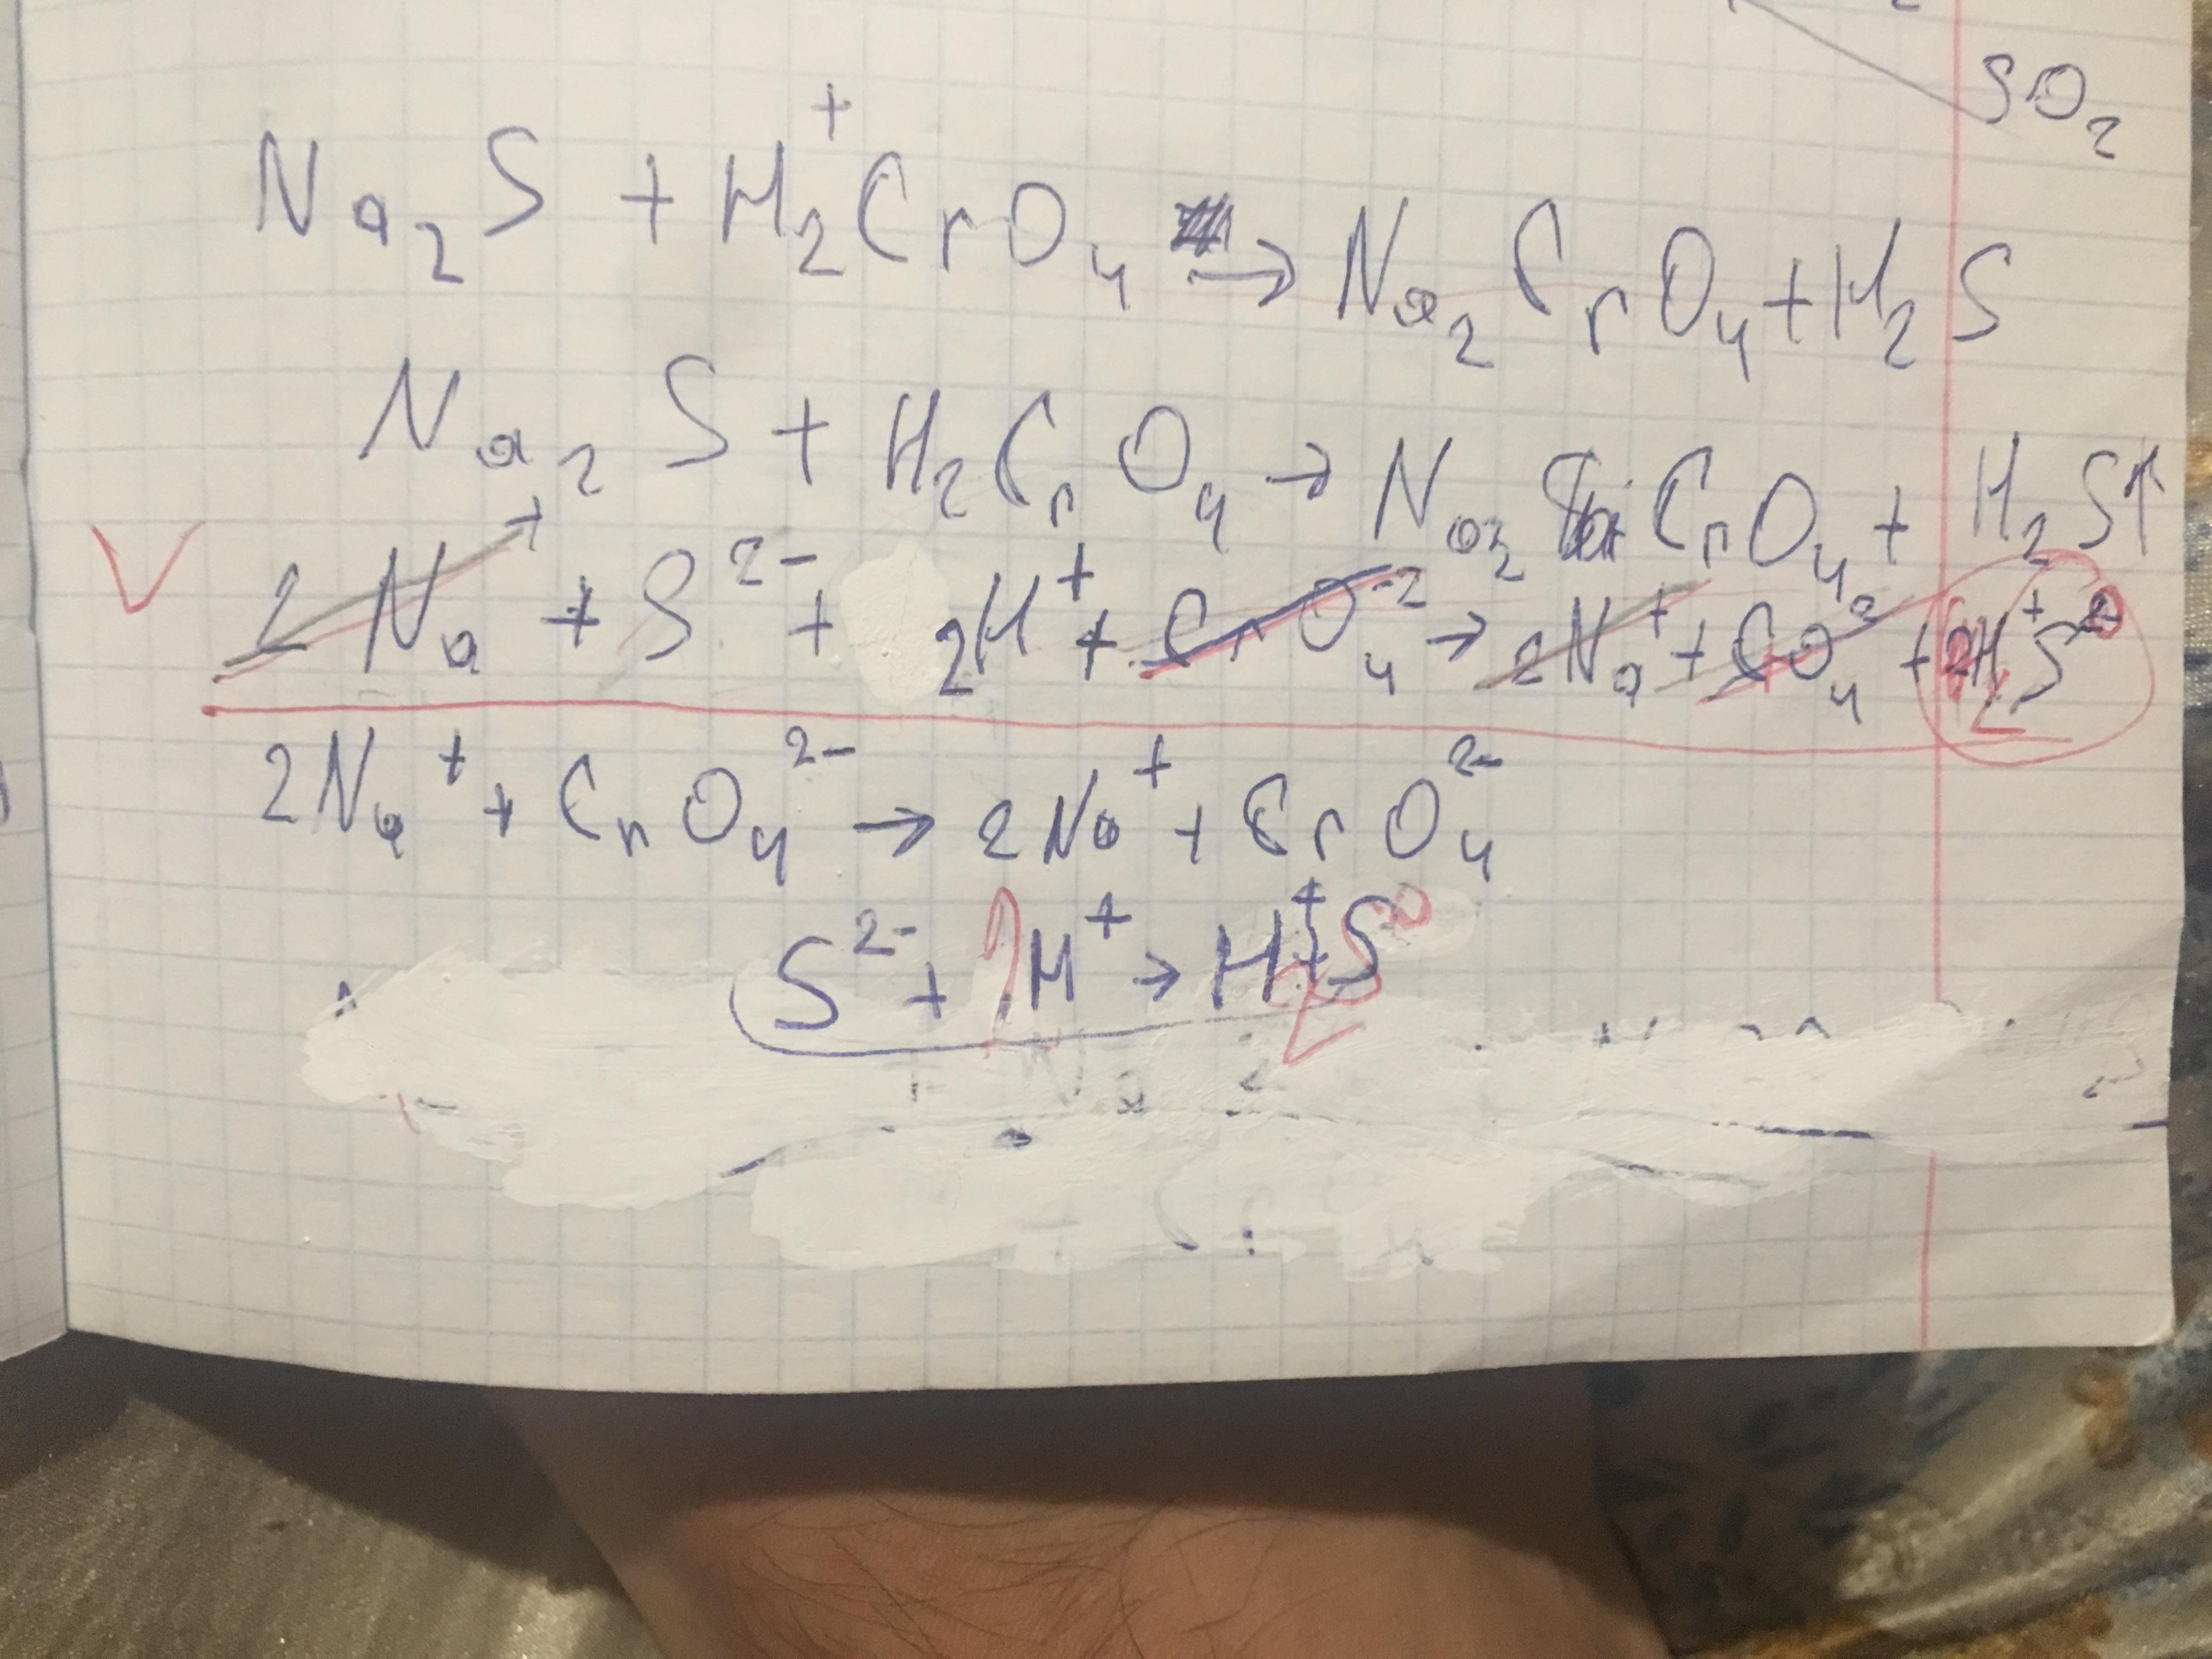 SO₂
Na₂S + H₂⁺CrO₄ → Na₂CrO₄ + H₂S
Na₂S + H₂CrO₄ → Na₂ CrO₄ + H₂S↑
2Na⁺ + S²⁻ + 2H⁺ + CrO₄⁻² → 2Na⁺ + CO₄² + 2H₂⁺S
2Na⁺ + CrO₄²⁻ → 2Na⁺ + CrO₄²⁻
S²⁻ + 2H⁺ → H₂⁺S⁰